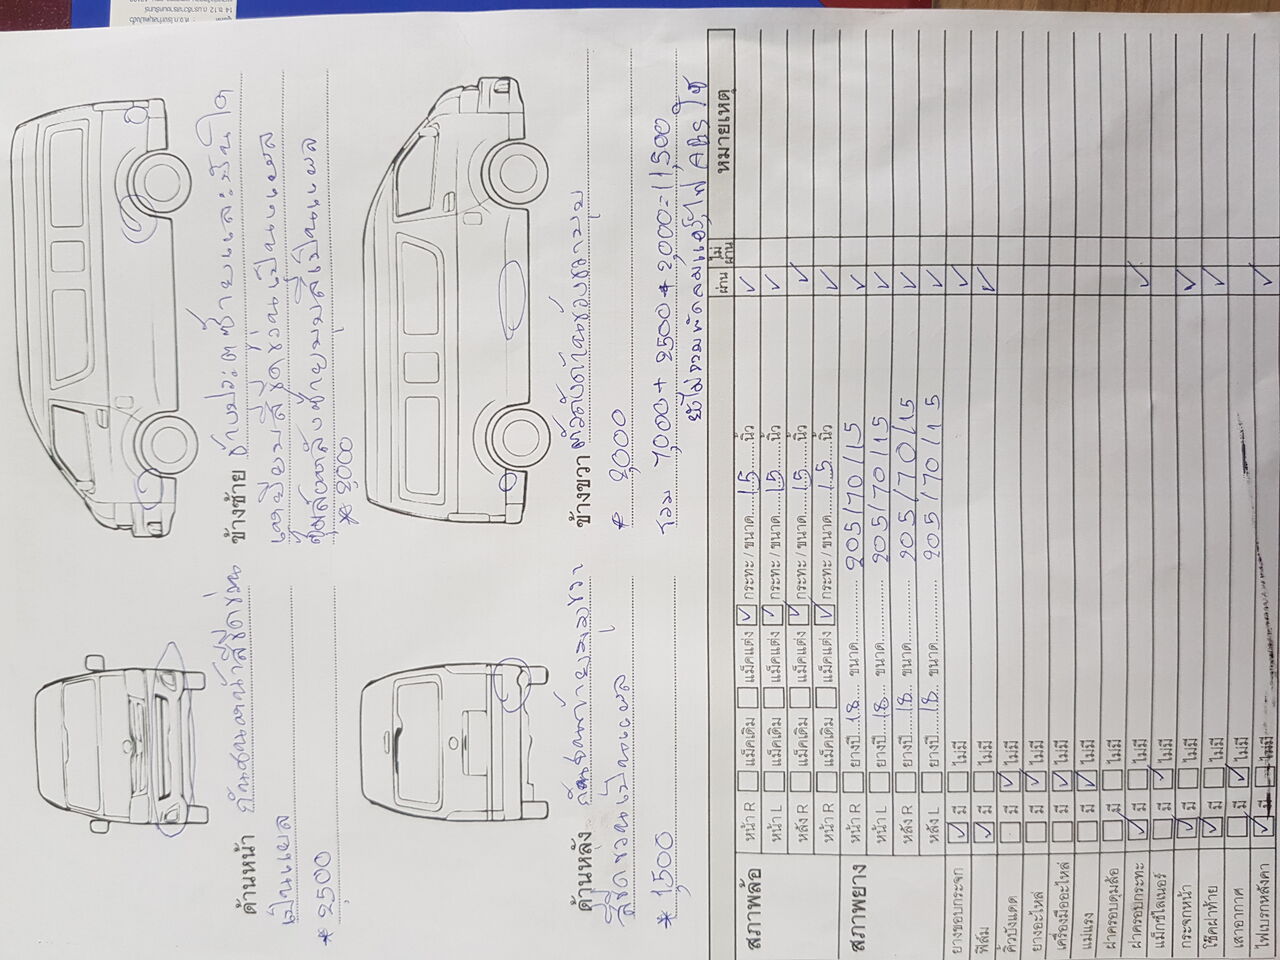 ด้านหน้า กันชนหน้าสีขีดข่วน
เป็นแผล
* 2,500
ข้างซ้าย ข้างประตูซ้ายและบันได
สีขีดข่วนเป็นแผล
ซุ้มล้อหลังซ้ายมุมสีเป็นแผล
* 2,000
ด้านหลัง กันชนท้ายมุมขวา
สีขีดข่วนเป็นแผล
* 1,500
ข้างขวา
* 2,000
รวม 7,000 + 2500 + 2,000 = 11,500
ยังไม่รวมพัดลมแอร์, ไฟ ABS โชว์
ผ่าน ไม่ผ่าน หมายเหตุ
สภาพล้อ หน้า R แม็คเดิม แม็คแต่ง ✓ กระทะ / ขนาด 15 นิ้ว ✓
หน้า L แม็คเดิม แม็คแต่ง ✓ กระทะ / ขนาด 15 นิ้ว ✓
หลัง R แม็คเดิม แม็คแต่ง ✓ กระทะ / ขนาด 15 นิ้ว ✓
หน้า R แม็คเดิม แม็คแต่ง ✓ กระทะ / ขนาด 15 นิ้ว ✓
สภาพยาง หน้า R ยางปี 18 ขนาด 205/70/15 ✓
หน้า L ยางปี 18 ขนาด 205/70/15 ✓
หลัง R ยางปี 18 ขนาด 205/70/15 ✓
หลัง L ยางปี 18 ขนาด 205/70/15 ✓
ยางขอบกระจก ✓ มี ไม่มี ✓
ฟิล์ม ✓ มี ไม่มี ✓
คิ้วบังแดด มี ✓ ไม่มี
ยางอะไหล่ มี ✓ ไม่มี
เครื่องมืออะไหล่ มี ✓ ไม่มี
แม่แรง มี ✓ ไม่มี
ฝาครอบดุมล้อ มี ไม่มี
ฝาครอบกระทะ ✓ มี ไม่มี ✓
แม็กซ์ไลเนอร์ มี ✓ ไม่มี
กระจกหน้า ✓ มี ไม่มี ✓
โช๊คฝาท้าย ✓ มี ไม่มี ✓
เสาอากาศ มี ✓ ไม่มี
ไฟเบรกหลังคา ✓ มี ไม่มี ✓